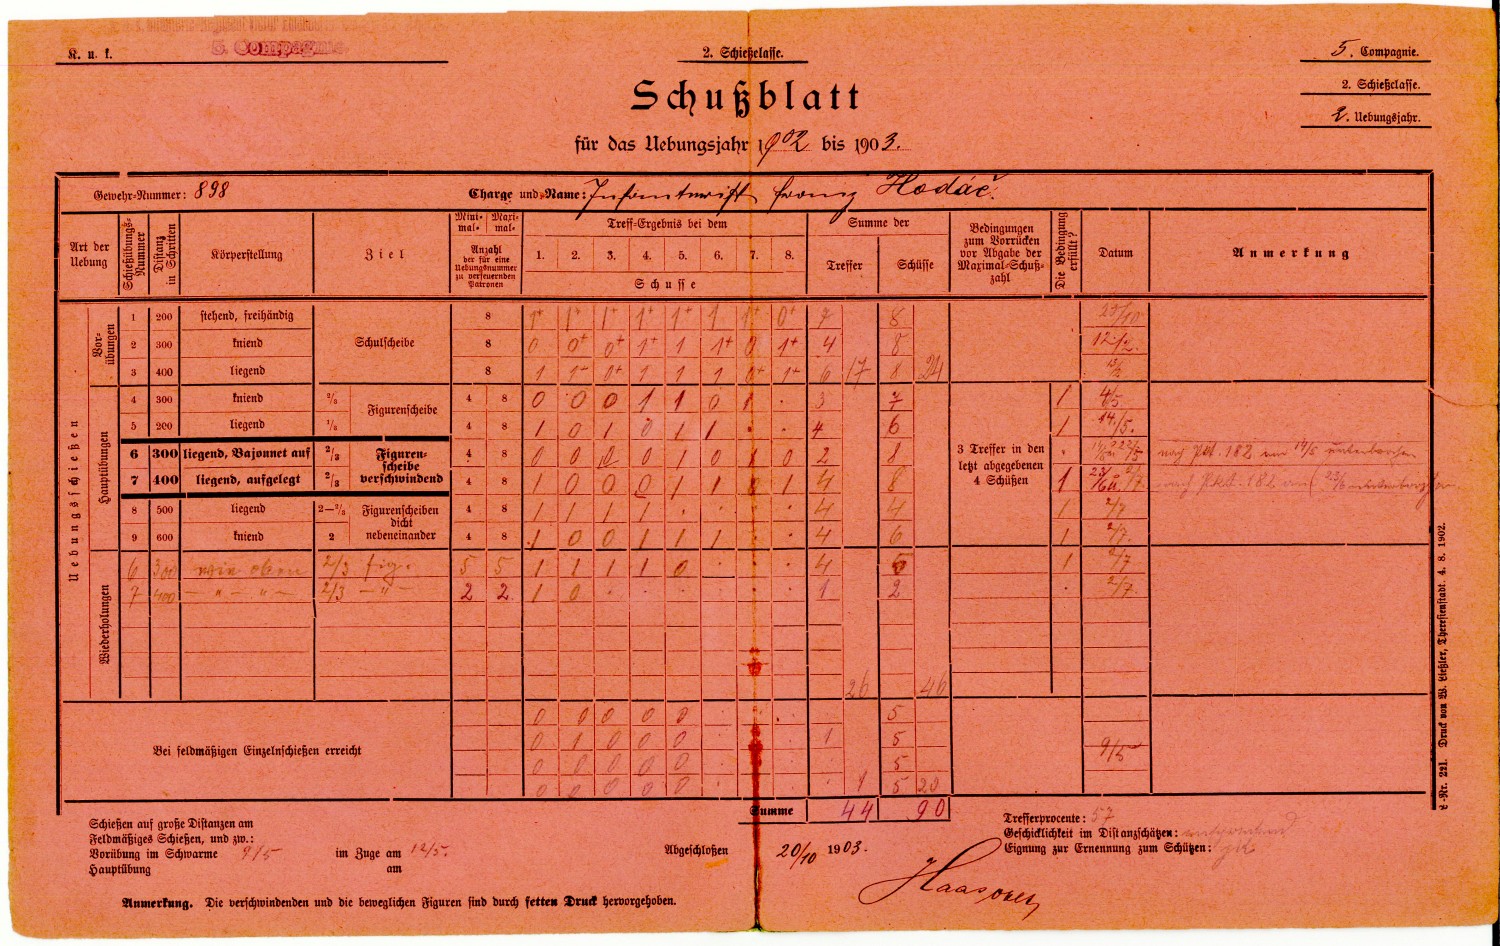 K. u. k.
5. Compagnie.
2. Schießclasse.
5. Compagnie.
2. Schießclasse.
2. Uebungsjahr.
Schußblatt
für das Uebungsjahr 1902 bis 1903.
Gewehr-Nummer: 898 Charge und Name: Infanterist Franz Hodáč.
Art der Uebung
Schießübungs-Nummer
Distanz in Schritten
Körperstellung
Ziel
Mini-mal- Maxi-mal-
Anzahl der für eine Uebungsnummer zu verfeuernden Patronen
Treff-Ergebnis bei dem
1. 2. 3. 4. 5. 6. 7. 8.
Schusse
Summe der
Treffer Schüsse
Bedingungen zum Vorrücken vor Abgabe der Maximal-Schuß-zahl
Die Bedingung erfüllt?
Datum
Anmerkung
Uebungsschießen
Vor-übungen
1 200 stehend, freihändig 8 1+ 1+ 1+ 1+ 1+ 1 1+ 0+ 7 8 20/10
2 300 kniend Schulscheibe 8 0 0+ 0+ 1+ 1 1+ 0 1+ 4 8 12/2.
3 400 liegend 8 1 1+ 0+ 1 1 1 0+ 1+ 6 17 8 24
Hauptübungen
4 300 kniend 2/3 Figurenscheibe 4 8 0 0 0 1 1 0 1 . 3 7 1 4/5
5 200 liegend 1/3 4 8 1 0 1 0 1 1 . . 4 6 1 14./5.
6 300 liegend, Bajonnet auf 2/3 Figuren-scheibe verschwindend 4 8 0 0 0 0 1 0 1 0 2 8 .
7 400 liegend, aufgelegt 2/3 4 8 0 0 0 1 1 0 1 4 8 1
3 Treffer in den letzt abgegebenen 4 Schüßen
8 500 liegend 2—2/3 Figurenscheiben dicht nebeneinander 4 8 1 1 1 1 . . . . 4 4 1 2/7
9 600 kniend 2 4 8 1 0 0 1 1 1 . . 4 6 1 2/7.
Wiederholungen
6 300 wie oben 2/3 fig. 5 5 1 1 1 1 0 . . . 4 5 1 2/7
7 400 — " — " — 2/3 — " — 2 2 1 0 . . . . . . 1 2 . 2/7
26 46
Bei feldmäßigen Einzelnschießen erreicht
0 0 0 0 0 . . 5
0 1 0 0 0 1 5 9/5
0 0 0 0 0 5
0 0 0 0 0 . 1 5 20
Summe 44 90
Schießen auf große Distanzen am
Feldmäßiges Schießen, und zw.:
Vorübung im Schwarme 9/5 im Zuge am 12/5.
Hauptübung am
Abgeschloßen 20/10 1903.
Trefferprocente: 57
Geschicklichkeit im Distanzschätzen:
Eignung zur Ernennung zum Schützen:
Haas
Anmerkung. Die verschwindenden und die beweglichen Figuren sind durch fetten Druck hervorgehoben.
L.-Nr. 221. Druck von W. Ließler, Theresienstadt. 4. 8. 1902.